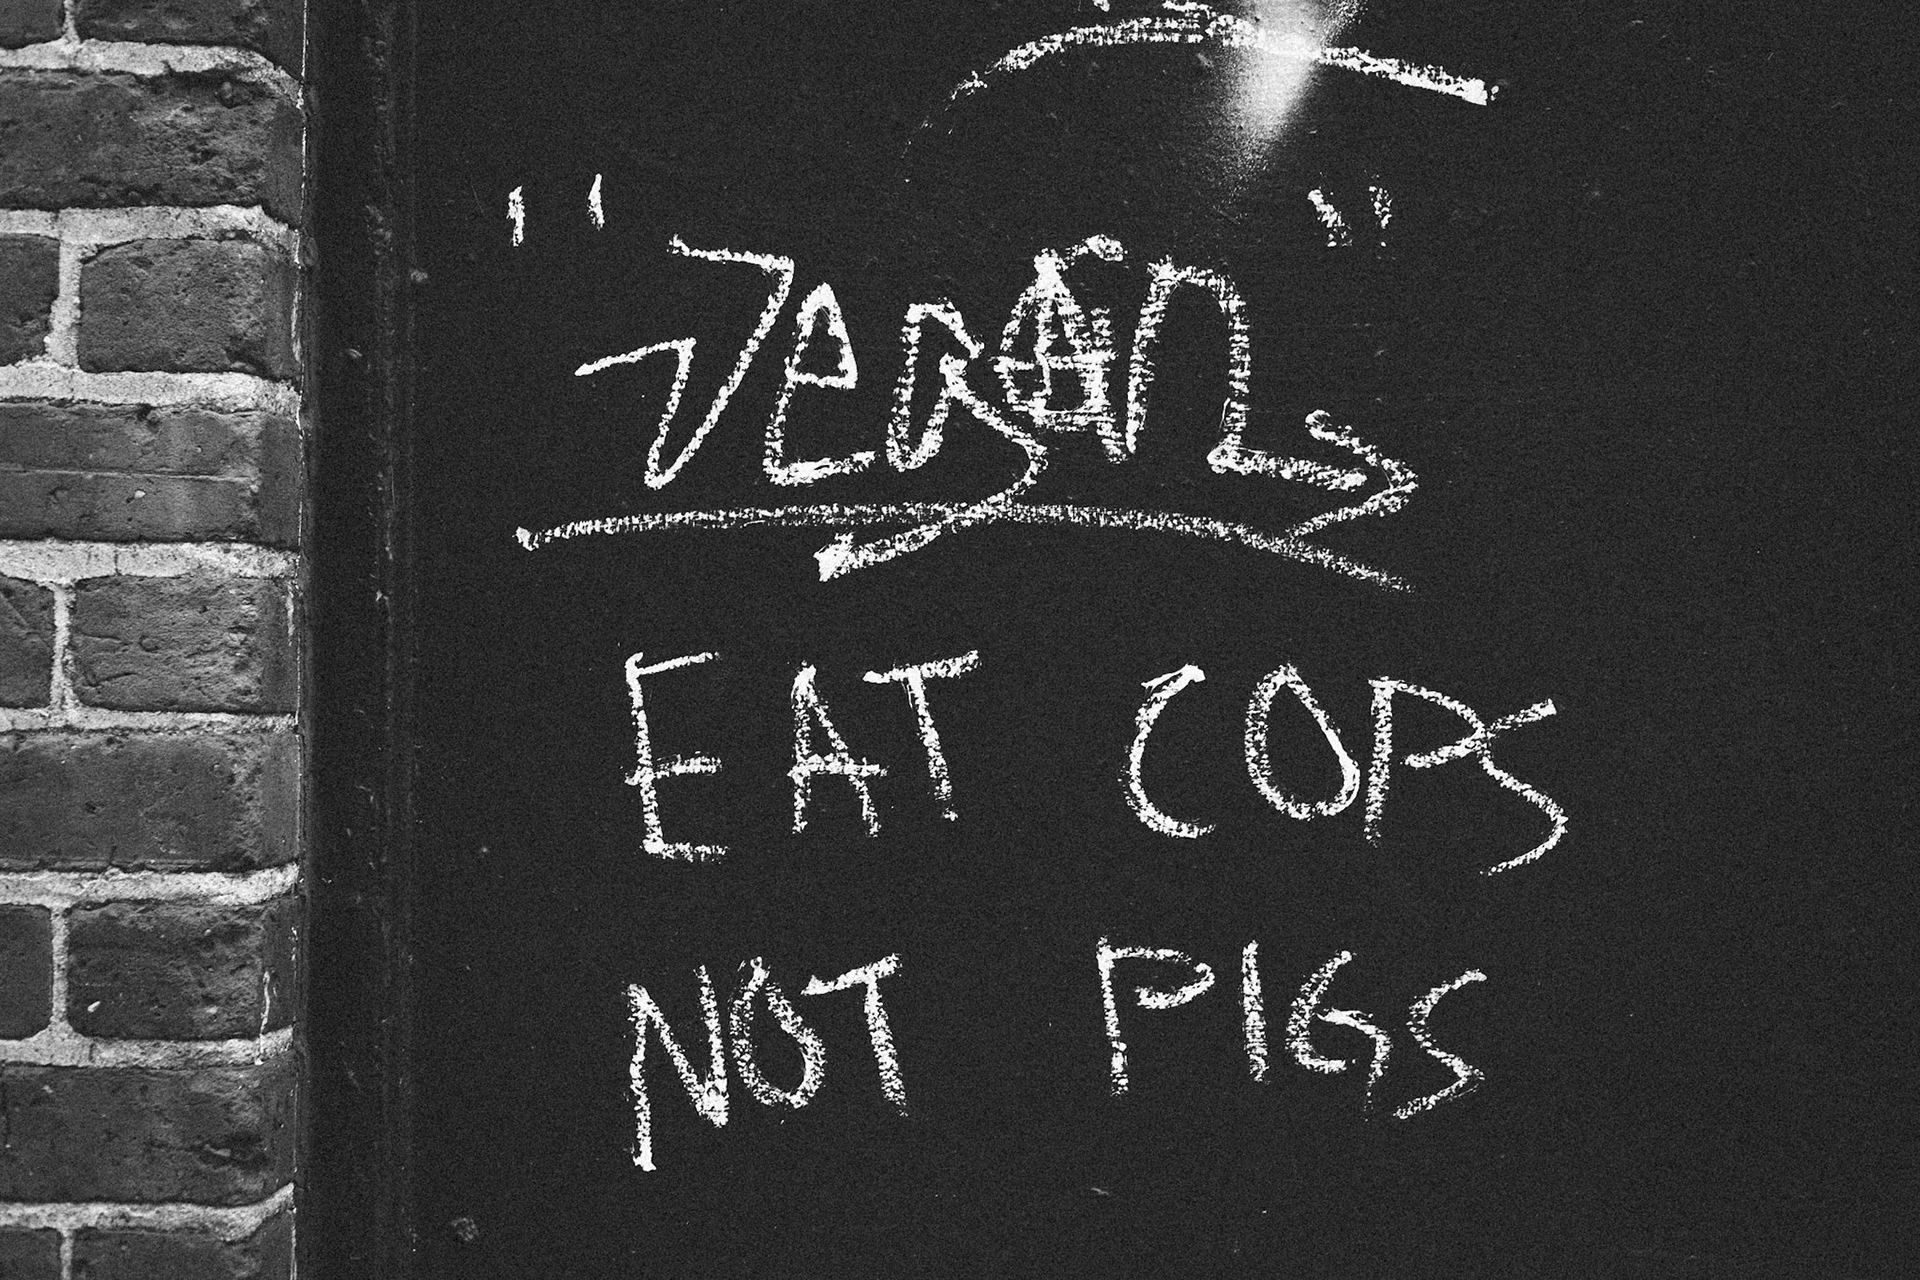 "VEGAN"
EAT COPS
NOT PIGS